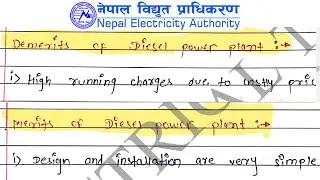 नेपाल विद्युत प्राधिकरण
Nepal Electricity Authority
Demerits of Diesel power plant :→
i) High running charges due to costly pric
merits of Diesel power plant :→
i) Design and installation are very simple